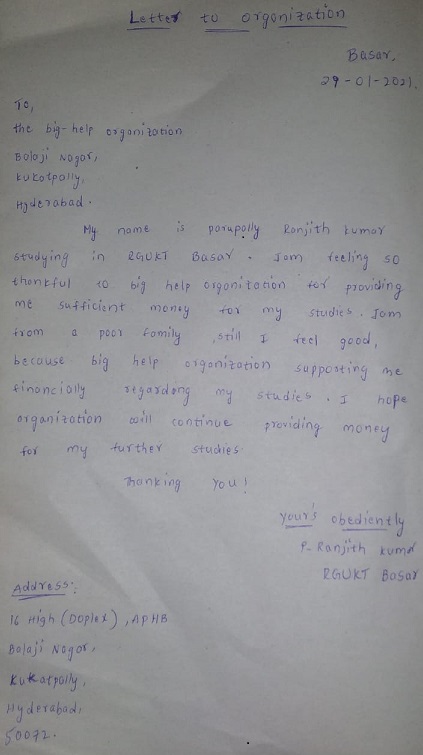 Letter to organization
Basar,
29-01-2021.
To,
the big-help organization
Balaji Nagar,
Kukatpally,
Hyderabad.
My name is parupally Ranjith kumar
studying in RGUKT Basar. Iam feeling so
thankful to big help organization for providing
me sufficient money for my studies. Iam
from a poor family, still I feel good,
because big help organization supposting me
financially regardang my studies. I hope
organization will continue providing money
for my further studies.
Thanking you!
your's obediently
P. Ranjith kumar
RGUKT Basar
Address:
16 High (Doplex), APHB
Balaji Nagar,
Kukatpally,
Hyderabad,
50072.